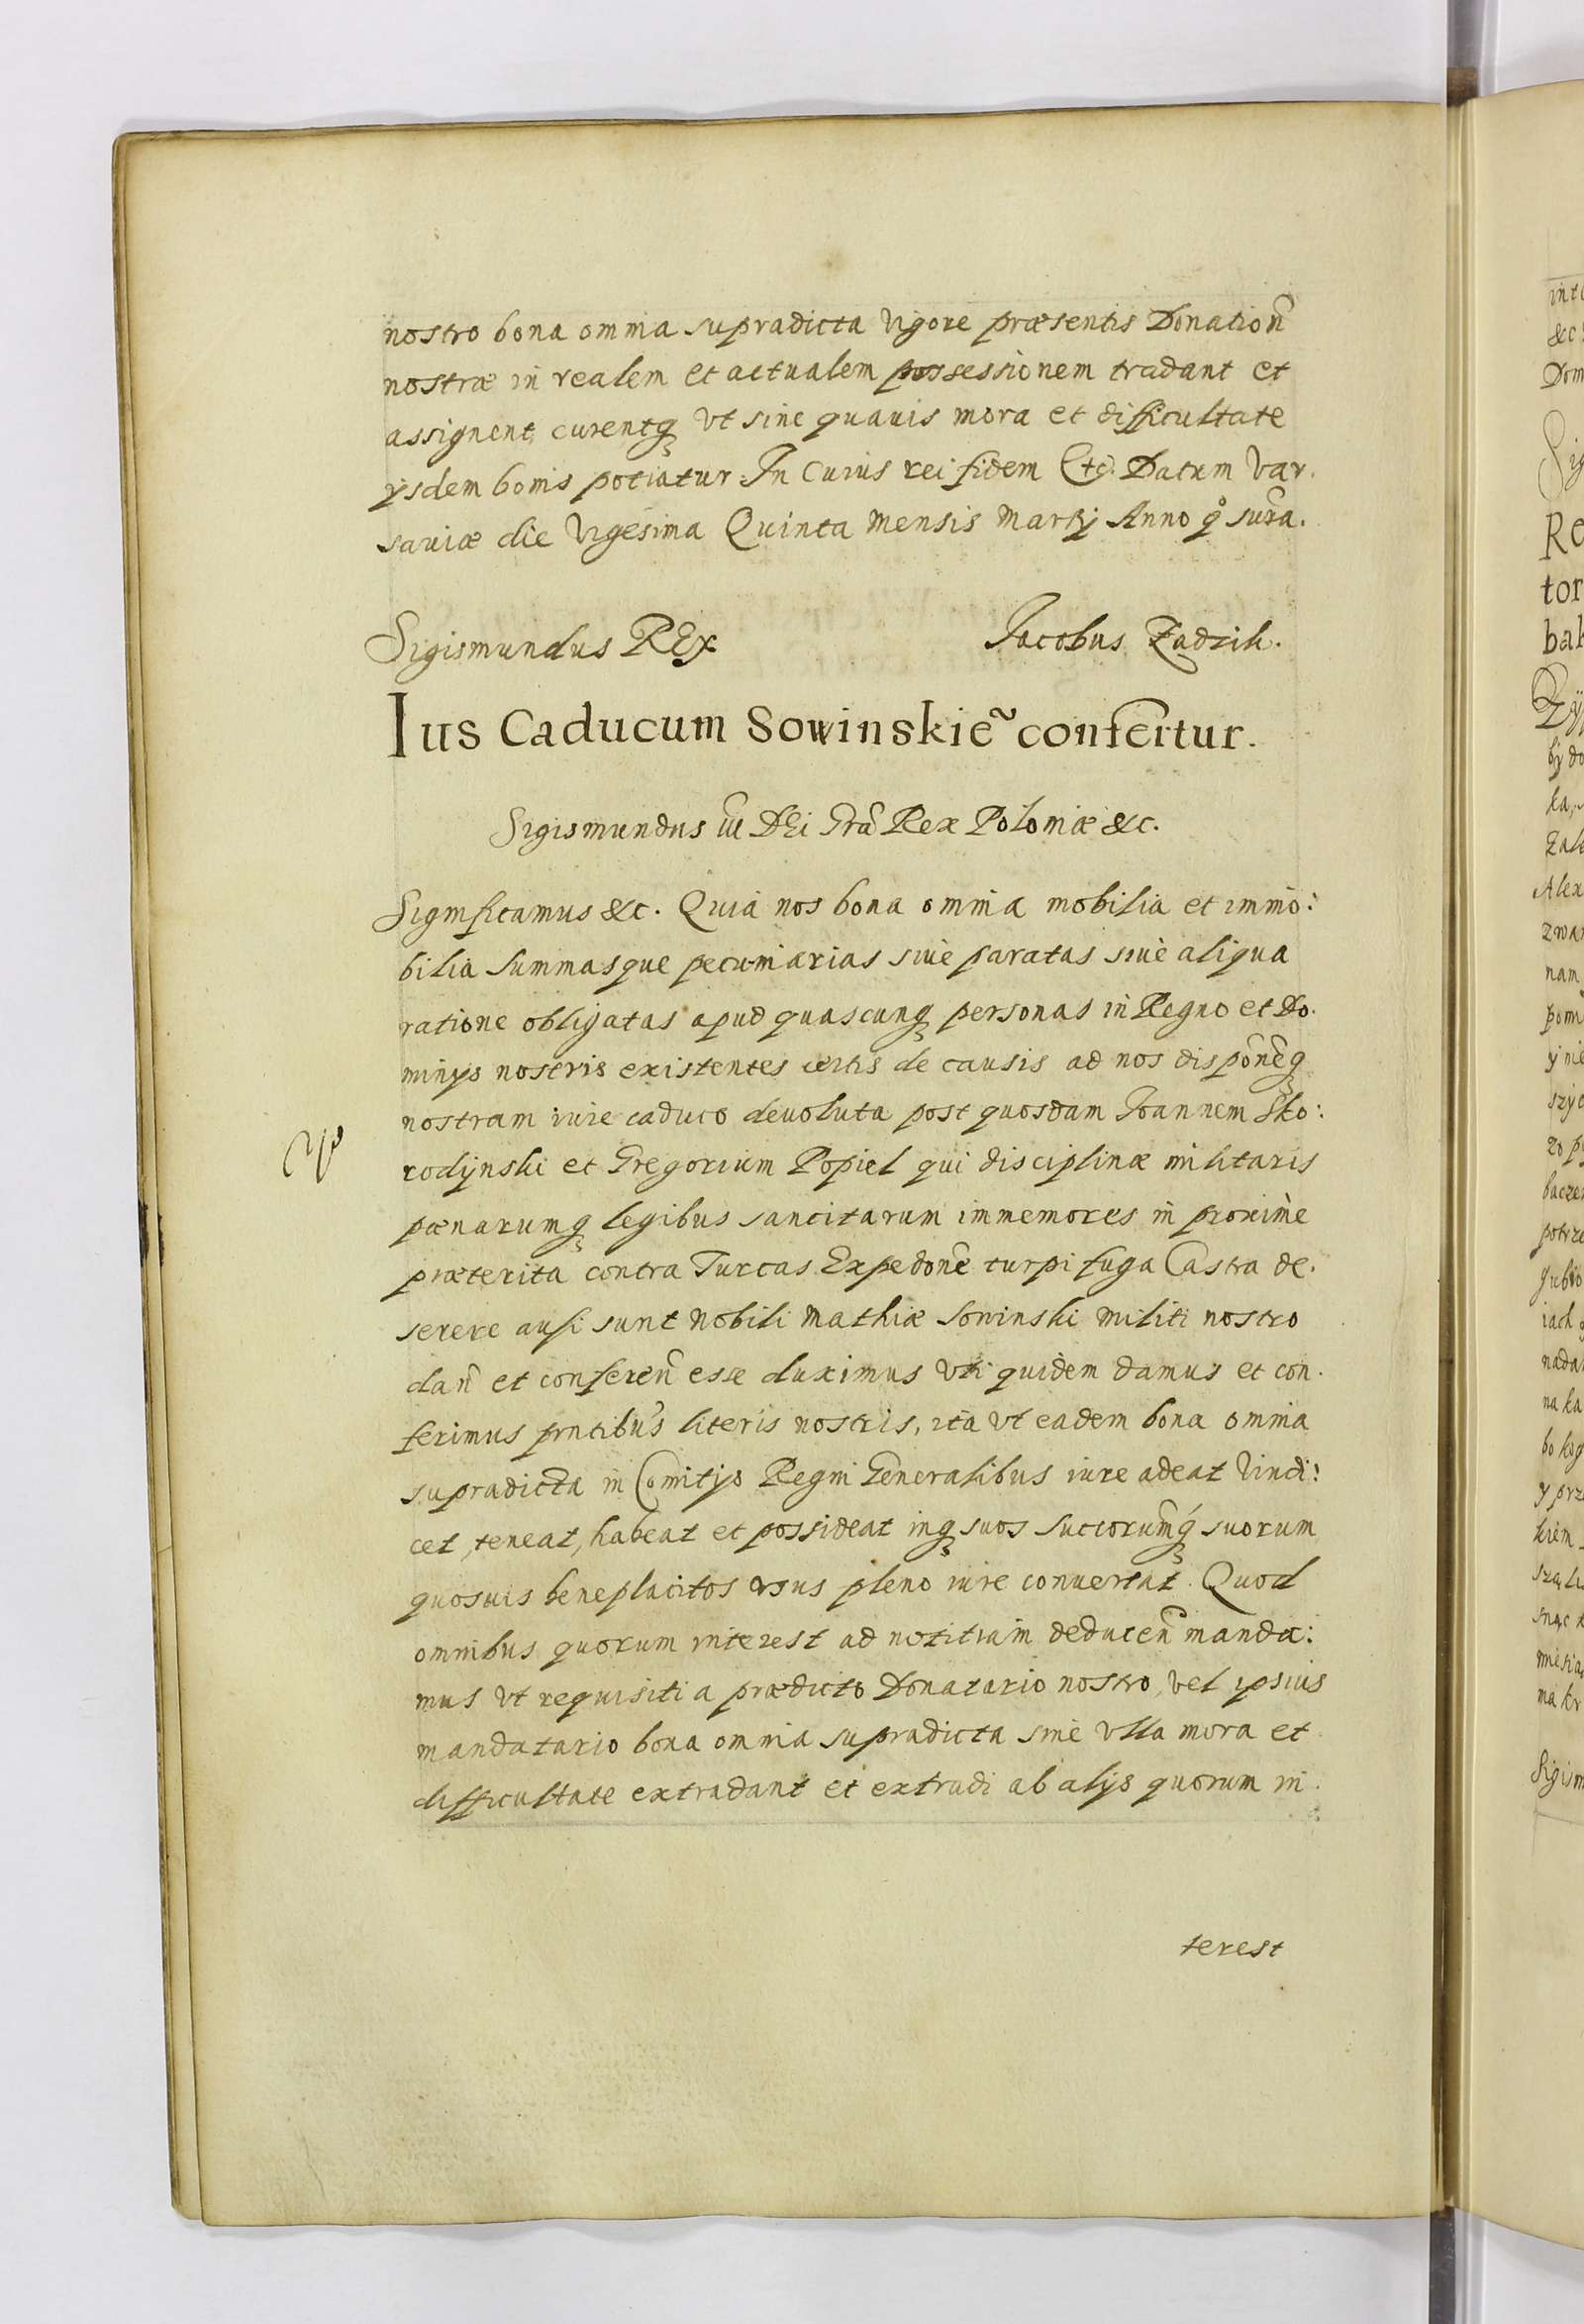 nostro bona omnia supradicta vigore præsentis Donatioñ
nostræ in realem et actualem possessionem tradant et
assignent, curentq vt sine quauis mora et difficultate
ijsdem bonis potiatur. In Cuius rei fidem Etc. Datum Var.
sauiæ die Vigesima Quinta Mensis Martij Anno qͦ suṙa.
Sigismundus REx
Jacobus Zadzik.
Ius Caducum Sowinskie~ confertur.
Sigismundus III DEi Gra Rex Poloniæ &c.
Significamus &c. Quia nos bona omnia mobilia et immo:
bilia Summasque pecuniarias siue paratas siue aliqua
ratione obligatas apud quascunq personas in Regno et Do.
minijs nostris existentes certis de causis ad nos disponeq
nostram iure caduco deuoluta post quosdam Joannem Sko:
rodijnski et Gregorium Popiel qui disciplinæ militaris
pœnarumq legibus sancitarum immemores in proximè
præterita contra Turcas Expedone turpi fuga Castra de.
serere ausi sunt Nobili Mathiæ Sowinski Militi nostro
dañ et confereñ esse duximus Vti quidem damus et con.
ferimus pntibus literis nostris, ita vt eadem bona omnia
supradicta in Comitijs Regni Generalibus iure adeat Vindi:
cet, teneat, habeat et possideat inq suos succorumq suorum
quosuis beneplacitos vsus pleno iure conuertat. Quod
omnibus quorum interest ad notitiam deduceñ manda:
mus vt requisiti a prædicto Donatario nostro, vel ipsius
mandatario bona omnia supradicta sine vlla mora et
difficultate extradant et extradi ab alijs quorum in.
terest